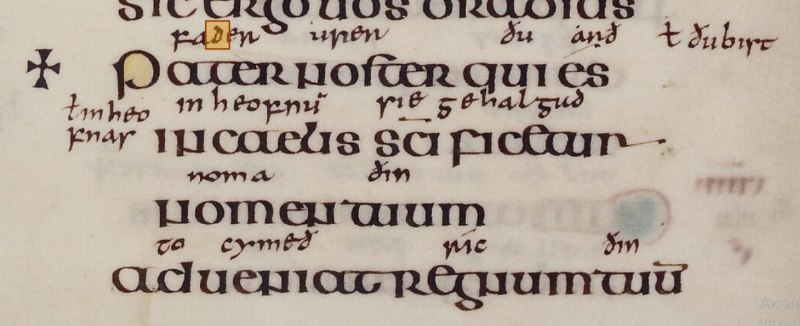 sic ergo uos orabitis
fader urer ðu arð ł ðu bist
✠ Pater noster qui es
ł in heofnas in heofnū sie gehalgad
in caelis sc̄ificetur
noma ðin
nomen tuum
to cymeð ric ðin
adueniat regnum tuū